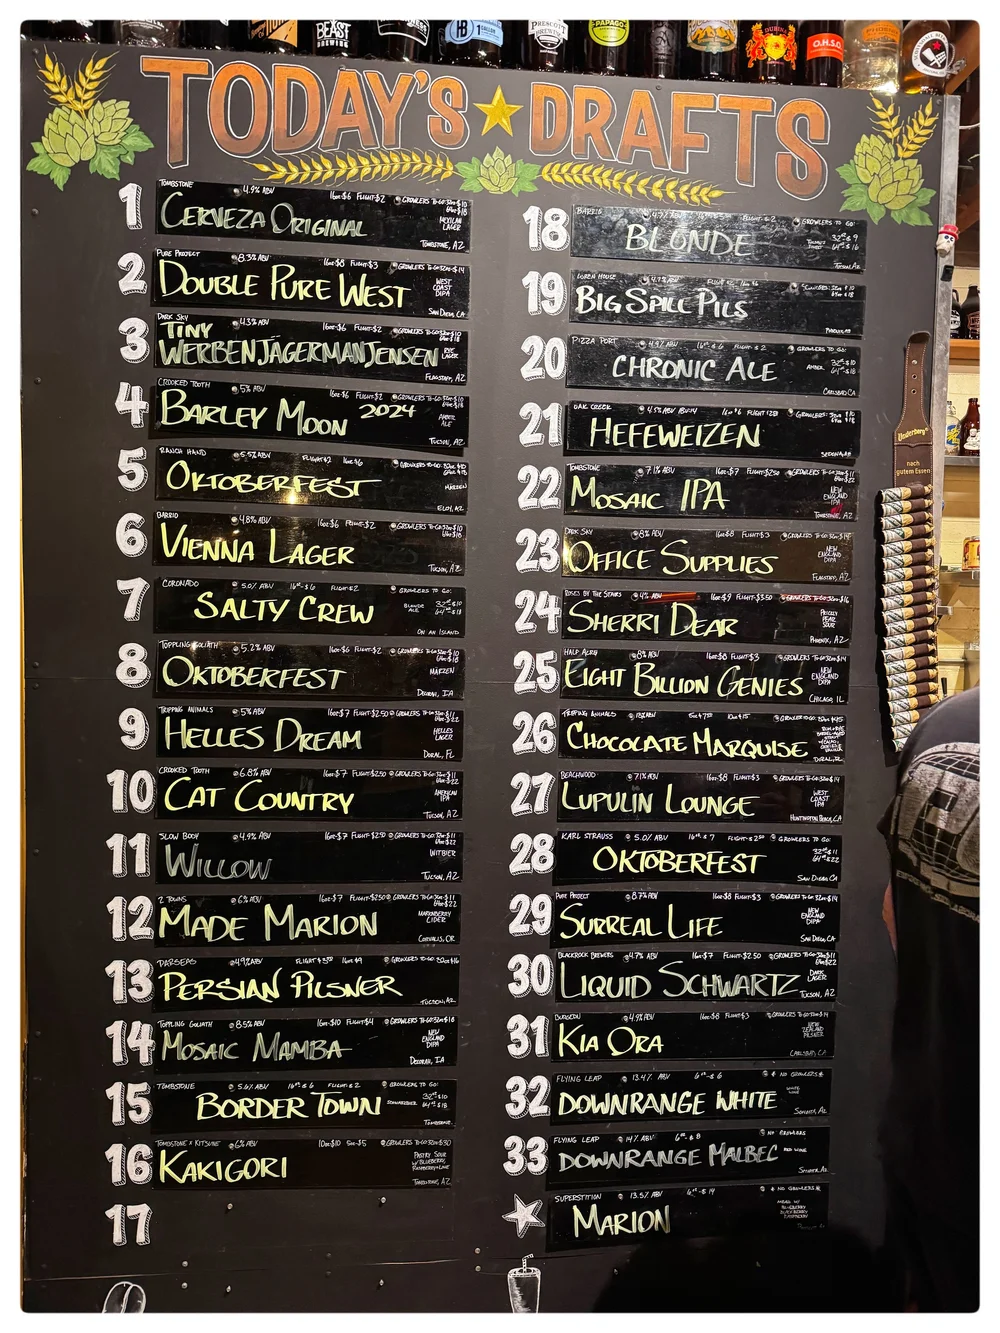 BEAST
BREWING
HB
1 GALLON
PRESCOTT
PAPAGO
O.H.S.O.
TODAY'S ★ DRAFTS
1
TOMBSTONE 4.9% ABV 16oz-$6 FLIGHT-$2 GROWLERS TO-GO: 32oz-$10
64oz-$18
CERVEZA ORIGINAL
MEXICAN
LAGER
TOMBSTONE, AZ
2
PURE PROJECT 8.3% ABV 16oz-$8 FLIGHT-$3 GROWLERS TO-GO: 32oz-$14
DOUBLE PURE WEST
WEST
COAST
DIPA
SAN DIEGO, CA
3
DARK SKY 4.3% ABV 16oz-$6 FLIGHT-$2 GROWLERS TO-GO: 32oz-$10
64oz-$18
TINY
WERBENJÄGERMANJENSEN
RYE
LAGER
FLAGSTAFF, AZ
4
CROOKED TOOTH 5% ABV 16oz-$6 FLIGHT-$2 GROWLERS TO-GO: 32oz-$10
64oz-$18
BARLEY MOON 2024
AMBER
ALE
TUCSON, AZ
5
RANCH HAND 5.5% ABV FLIGHT-$2 16oz-$6 GROWLERS TO-GO: 32oz-$10
64oz-$18
OKTOBERFEST
MÄRZEN
ELOY, AZ
6
BARRIO 4.8% ABV 16oz-$6 FLIGHT-$2 GROWLERS TO-GO: 32oz-$10
64oz-$18
VIENNA LAGER
TUCSON, AZ
7
CORONADO 5.0% ABV 16oz-$6 FLIGHT-$2 GROWLERS TO GO:
SALTY CREW
BLONDE
ALE
32oz-$10
64oz-$18
ON AN ISLAND
8
TOPPLING GOLIATH 5.2% ABV 16oz-$6 FLIGHT-$2 GROWLERS TO-GO: 32oz-$10
64oz-$18
OKTOBERFEST
MÄRZEN
DECORAH, IA
9
TRIPPING ANIMALS 5% ABV 16oz-$7 FLIGHT-$2.50 GROWLERS TO-GO: 32oz-$11
64oz-$22
HELLES DREAM
HELLES
LAGER
DORAL, FL
10
CROOKED TOOTH 6.8% ABV 16oz-$7 FLIGHT-$2.50 GROWLERS TO-GO: 32oz-$11
64oz-$22
CAT COUNTRY
AMERICAN
IPA
TUCSON, AZ
11
SLOW BODY 4.9% ABV 16oz-$7 FLIGHT-$2.50 GROWLERS TO-GO: 32oz-$11
64oz-$22
WILLOW
WITBIER
TUCSON, AZ
12
2 TOWNS 6% ABV 16oz-$7 FLIGHT-$2.50 GROWLERS TO-GO: 32oz-$11
64oz-$22
MADE MARION
MARIONBERRY
CIDER
CORVALLIS, OR
13
PARSEAS 4.9% ABV FLIGHT-$3.50 16oz-$9 GROWLERS TO-GO: 32oz-$16
PERSIAN PILSNER
TUCSON, AZ
14
TOPPLING GOLIATH 8.5% ABV 16oz-$10 FLIGHT-$4 GROWLERS TO-GO: 32oz-$18
MOSAIC MAMBA
NEW
ENGLAND
DIPA
DECORAH, IA
15
TOMBSTONE 5.6% ABV 16oz-$6 FLIGHT-$2 GROWLERS TO GO:
BORDER TOWN
SCHWARZBIER
32oz-$10
64oz-$18
TOMBSTONE
16
TOMBSTONE X KITSUNE 6% ABV 10oz-$10 5oz-$5 GROWLERS TO-GO: 32oz-$30
KAKIGORI
PASTRY SOUR
W/ BLUEBERRY,
RASPBERRY + LIME
TOMBSTONE, AZ
17
18
BARRIO 4.7% ABV FLIGHT-$2 GROWLERS TO GO:
BLONDE
32oz-$9
64oz-$16
TUCSON, AZ
19
WREN HOUSE 4.7% ABV
BIG SPILL PILS
PHOENIX, AZ
20
PIZZA PORT 4.9% ABV 16oz-$6 FLIGHT-$2 GROWLERS TO GO:
CHRONIC ALE
AMBER
32oz-$10
64oz-$18
CARLSBAD, CA
21
OAK CREEK 4.5% ABV 16oz-$6 GROWLERS:
HEFEWEIZEN
SEDONA, AZ
22
TOMBSTONE 7.1% ABV 16oz-$7 FLIGHT-$2.50 GROWLERS TO-GO: 32oz-$11
64oz-$22
MOSAIC IPA
NEW
ENGLAND
IPA
TOMBSTONE, AZ
23
DARK SKY 8% ABV 16oz-$8 FLIGHT-$3 GROWLERS TO-GO: 32oz-$14
OFFICE SUPPLIES
NEW
ENGLAND
DIPA
FLAGSTAFF, AZ
24
ROSES BY THE STAIRS 4% ABV 16oz-$9 FLIGHT-$3.50 GROWLERS TO-GO: 32oz-$16
SHERRI DEAR
PRICKLY
PEAR
SOUR
PHOENIX, AZ
25
HALF ACRE 8% ABV 16oz-$8 FLIGHT-$3 GROWLERS TO-GO: 32oz-$14
EIGHT BILLION GENIES
NEW
ENGLAND
DIPA
CHICAGO, IL
26
TRIPPING ANIMALS 13% ABV 5oz-$7.50 10oz-$15 GROWLER TO-GO: 32oz-$45
CHOCOLATE MARQUISE
DORAL, FL
27
BEACHWOOD 7.1% ABV 16oz-$8 FLIGHT-$3 GROWLERS TO-GO: 32oz-$14
LUPULIN LOUNGE
WEST
COAST
IPA
HUNTINGTON BEACH, CA
28
KARL STRAUSS 5.0% ABV 16oz-$7 FLIGHT-$2.50 GROWLERS TO GO:
OKTOBERFEST
32oz-$11
64oz-$22
SAN DIEGO, CA
29
PURE PROJECT 8.7% ABV 16oz-$8 FLIGHT-$3 GROWLERS TO-GO: 32oz-$14
SURREAL LIFE
NEW
ENGLAND
DIPA
SAN DIEGO, CA
30
BLACKROCK BREWERS 4.7% ABV 16oz-$7 FLIGHT-$2.50 GROWLERS TO-GO: 32oz-$11
64oz-$22
LIQUID SCHWARTZ
DARK
LAGER
TUCSON, AZ
31
BURGEON 4.9% ABV 16oz-$8 FLIGHT-$3 GROWLERS TO-GO: 32oz-$14
KIA ORA
NEW
ZEALAND
PILSNER
CARLSBAD, CA
32
FLYING LEAP 13.4% ABV 6oz-$6 * NO GROWLERS *
DOWNRANGE WHITE
WHITE
WINE
SONOITA, AZ
33
FLYING LEAP 14% ABV 6oz-$8 NO GROWLERS
DOWNRANGE MALBEC
RED WINE
SONOITA, AZ
★
SUPERSTITION 13.5% ABV 6oz-$14 * NO GROWLERS *
MARION
MEAD W/
BLUEBERRY
BLACKBERRY
RASPBERRY
Underberg
nach
gutem Essen